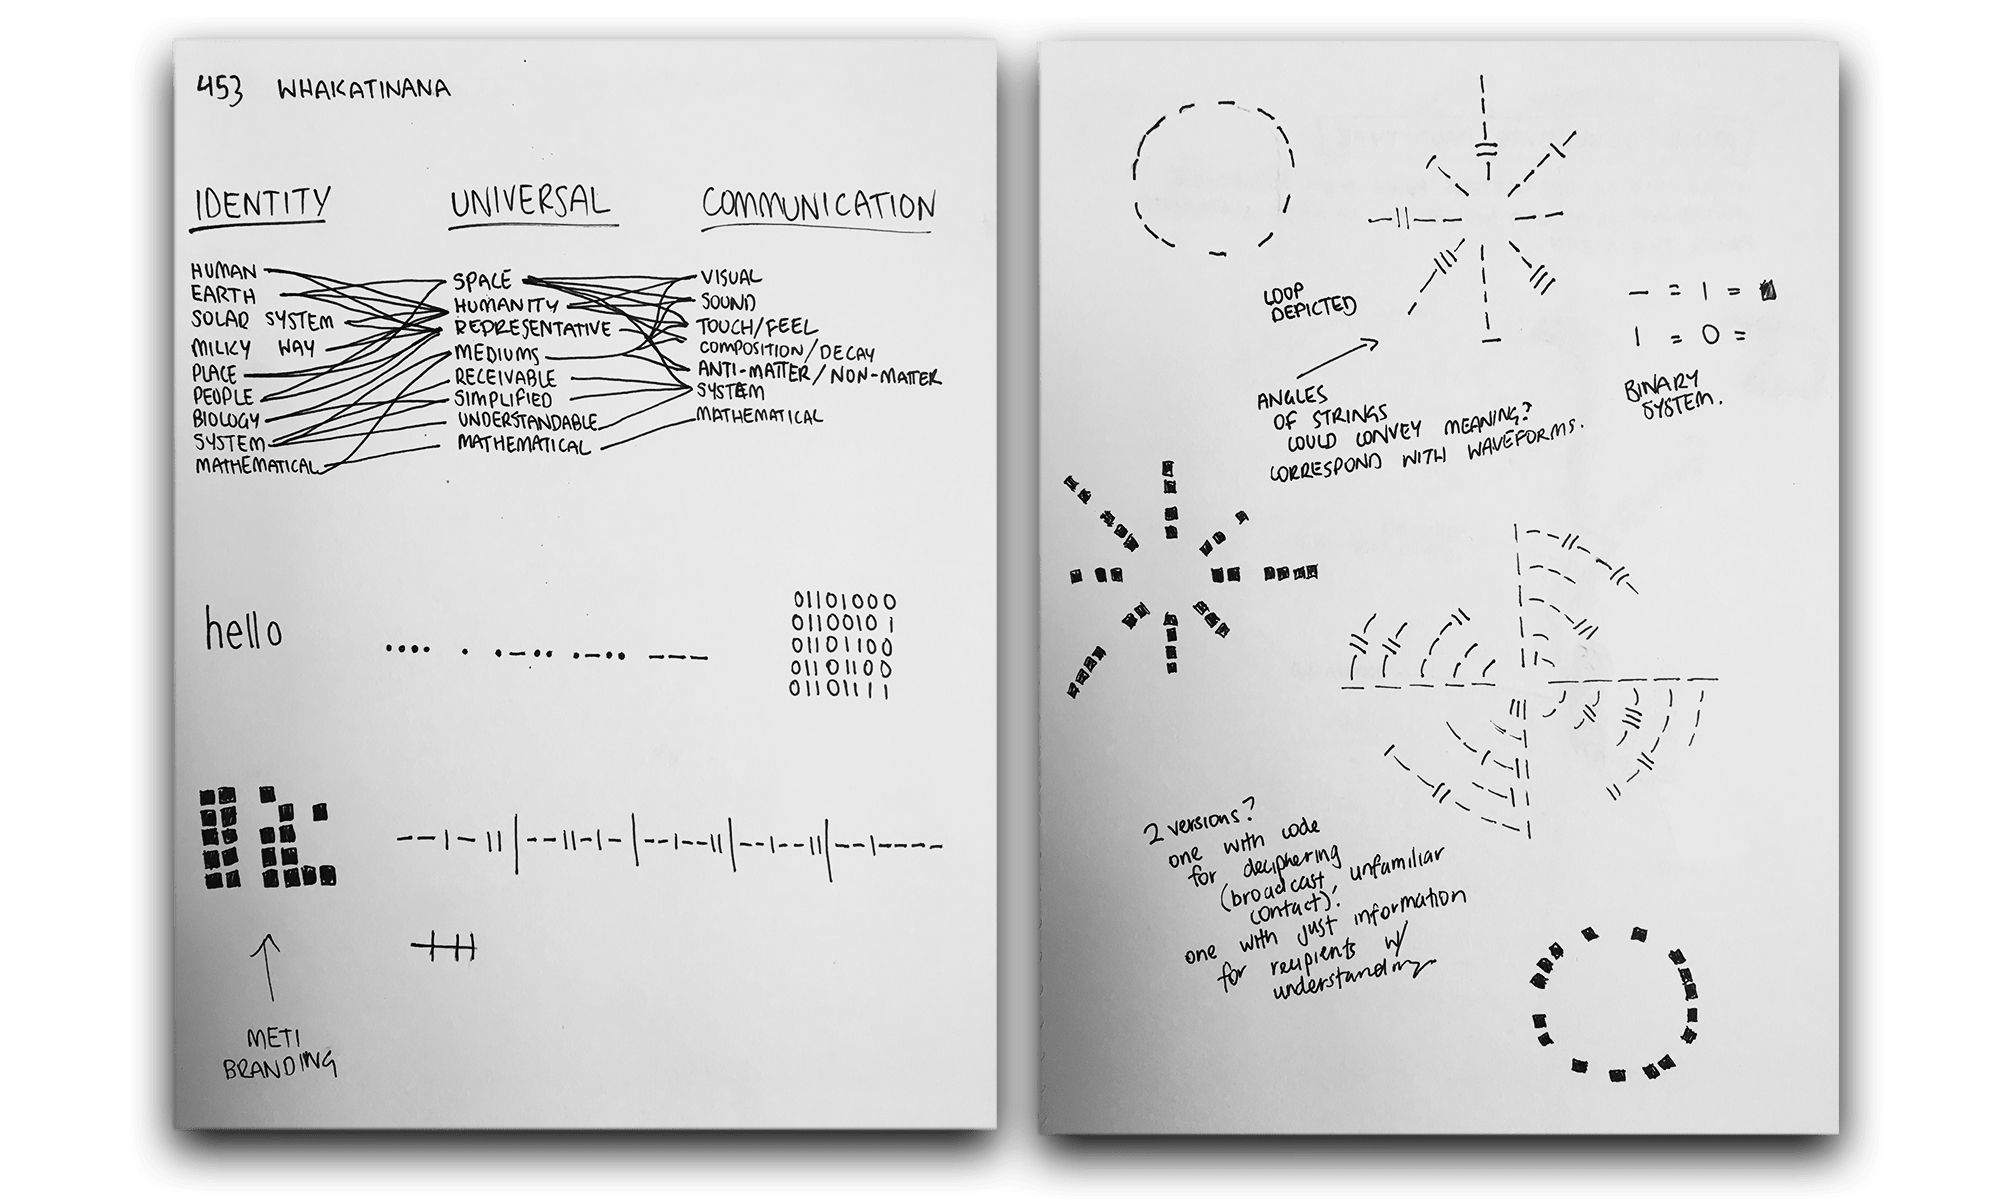 453 WHAKATINANA
IDENTITY
HUMAN
EARTH
SOLAR SYSTEM
MILKY WAY
PLACE
PEOPLE
BIOLOGY
SYSTEM
MATHEMATICAL
UNIVERSAL
SPACE
HUMANITY
REPRESENTATIVE
MEDIUMS
RECEIVABLE
SIMPLIFIED
UNDERSTANDABLE
MATHEMATICAL
COMMUNICATION
VISUAL
SOUND
TOUCH/FEEL
COMPOSITION/DECAY
ANTI-MATTER/NON-MATTER
SYSTEM
MATHEMATICAL
hello
.... . .-.. .-.. ---
01101000
01100101
01101100
01101100
01101111
METI
BRANDING
LOOP
DEPICTED
— = 1 = ■
1 = 0 =
BINARY
SYSTEM.
ANGLES
OF STRINGS
COULD CONVEY MEANING?
CORRESPOND WITH WAVEFORMS.
2 versions?
one with code
for deciphering
(broadcast, unfamiliar
contact).
one with just information
for recipients w/
understanding